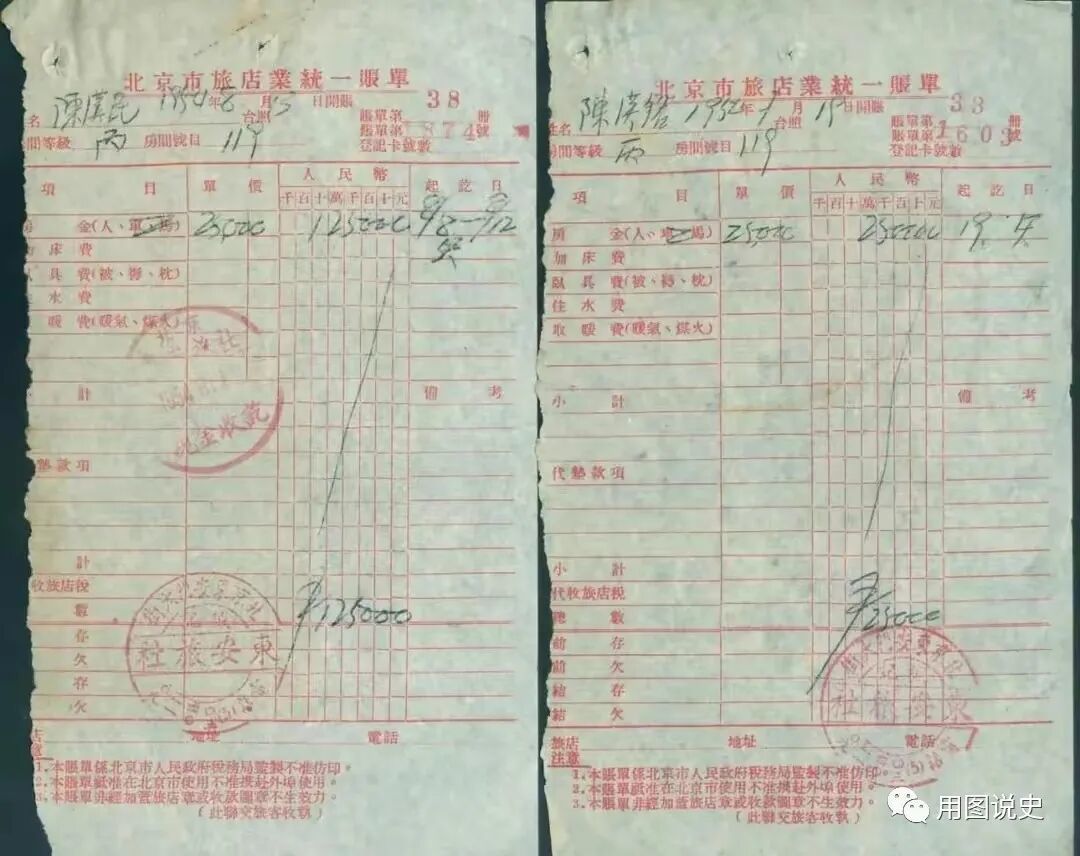 北京市旅店業統一賬單
名 陳漢民 1954年8月13日開賬
台照
賬單第 38 册
賬單第 1874 號
登記卡號數
間等級 丙 房間號目 119
項 目 單價 人民幣 起訖日
千百十萬千百十元
金(人、單 25000 125000
床費
具費(被、褥、枕)
水費
暖費(暖氣、煤火)
現金收訖
計 備考
墊款項
計
收旅店稅
數 125000
存
東安旅社
欠
存
欠
店 地址 電話
注意
1.本賬單係北京市人民政府稅務局監製不准仿印。
2.本賬單祇准在北京市使用不准携赴外埠使用。
3.本賬單非經加蓋旅店章或收款圖章不生效力。
(此聯交旅客收執)
北京市旅店業統一賬單
姓名 陳漢 年 月19日開賬
台照
賬單第 33 册
賬單第 1603 號
登記卡號數
房間等級 丙 房間號目 119
項 目 單價 人民幣 起訖日
千百十萬千百十元
房 金(人、 25000 25000 19
加床費
臥具費(被、褥、枕)
住水費
取暖費(暖氣、煤火)
小計 備考
代墊款項
小計
代收旅店稅
總數 25000
前存
前欠
東安旅社
結存
結欠
旅店 地址 電話
注意
1.本賬單係北京市人民政府稅務局監製不准仿印。
2.本賬單祇准在北京市使用不准携赴外埠使用。
3.本賬單非經加蓋旅店章或收款圖章不生效力。
(此聯交旅客收執)
用图说史